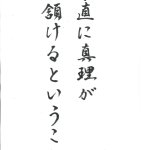 直に真理が
頷けるというこ